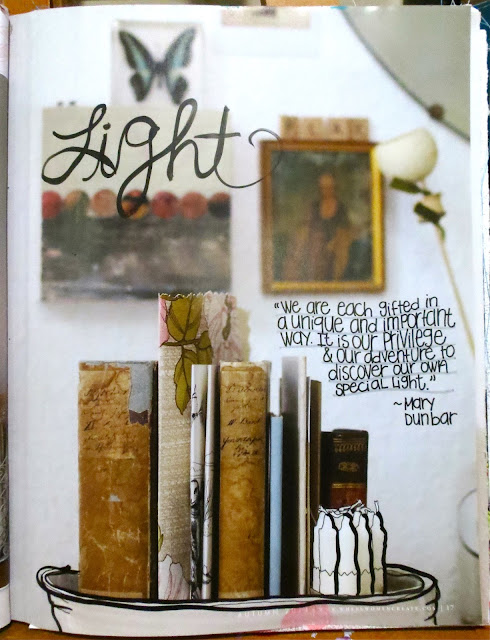 Light
"We are each gifted in
a unique and important
way. It is our privilege
& our adventure to
discover our own
special light."
~Mary
Dunbar